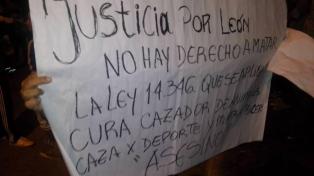 JUSTICIA POR LEÓN
NO HAY DERECHO A MATAR
LA LEY 14.346. QUE SE APLI
CURA CAZADOR DE
CAZA X DEPORTE Y
"ASESIN